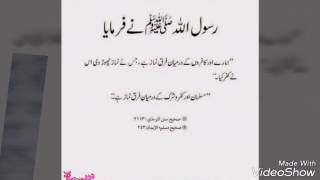 رسول اللہ ﷺ نے فرمایا
"ہمارے اور کافروں کے درمیان فرق نماز ہے، جس نے نماز چھوڑ دی اس
نے کفر کیا۔"
"مسلمان اور کفر و شرک کے درمیان فرق نماز ہے۔"
Made With
VideoShow